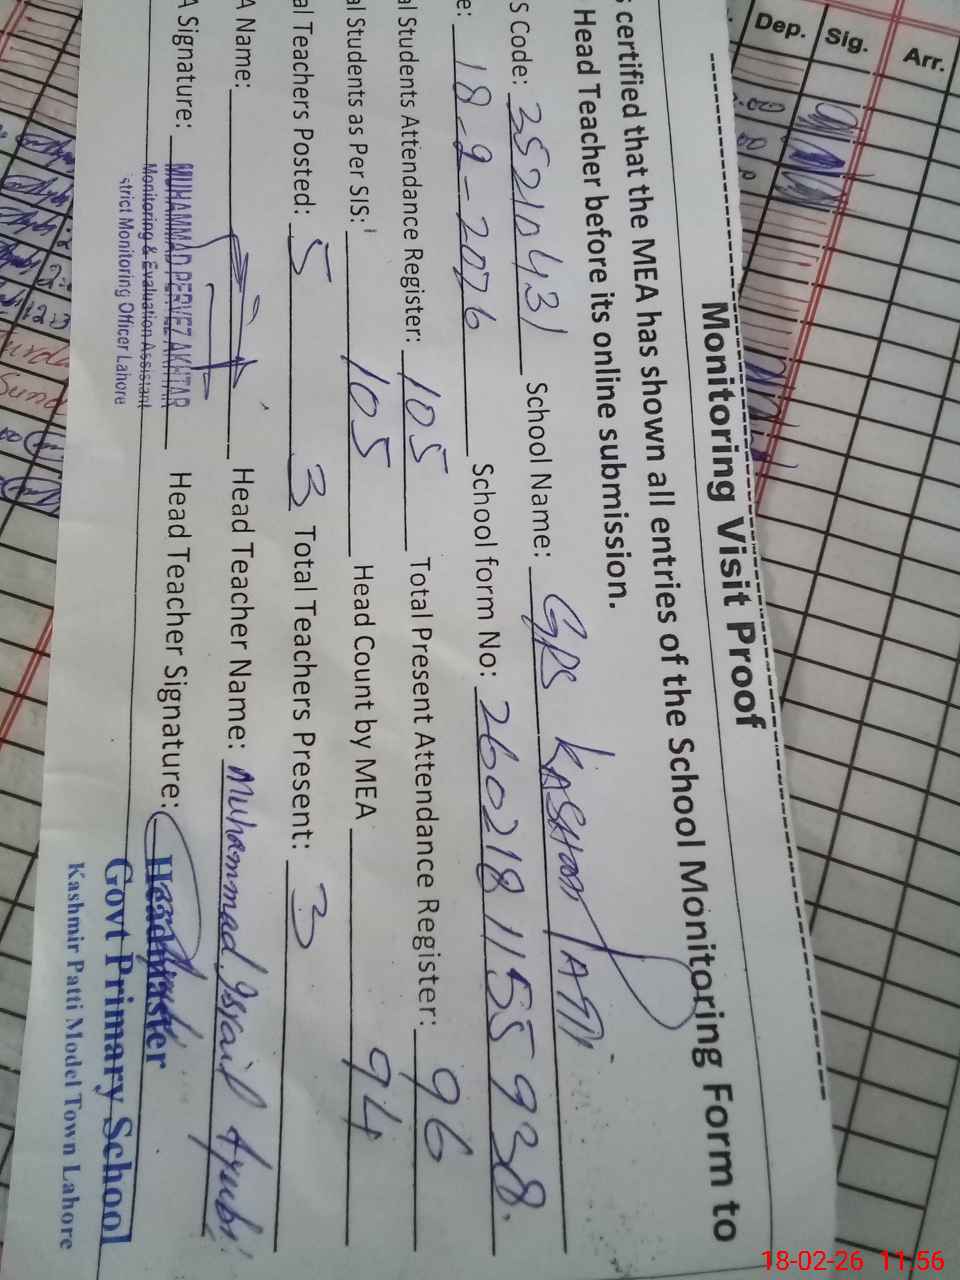 Dep. Sig. Arr.
Monitoring Visit Proof
s certified that the MEA has shown all entries of the School Monitoring Form to
Head Teacher before its online submission.
S Code: 35210431 School Name: GPS KASHMIR PATTI
e: 18-2-2026 School form No: 260218115 5938.
al Students Attendance Register: 105 Total Present Attendance Register: 96
al Students as Per SIS: 105 Head Count by MEA 94
al Teachers Posted: 5 3 Total Teachers Present: 3
A Name: Head Teacher Name: Muhammad Israil Ayubi
A Signature: Head Teacher Signature:
MUHAMMAD PERVEZ AKHTAR
Monitoring & Evaluation Assistant
strict Monitoring Officer Lahore
Headmaster
Govt Primary School
Kashmir Patti Model Town Lahore
18-02-26 11:56